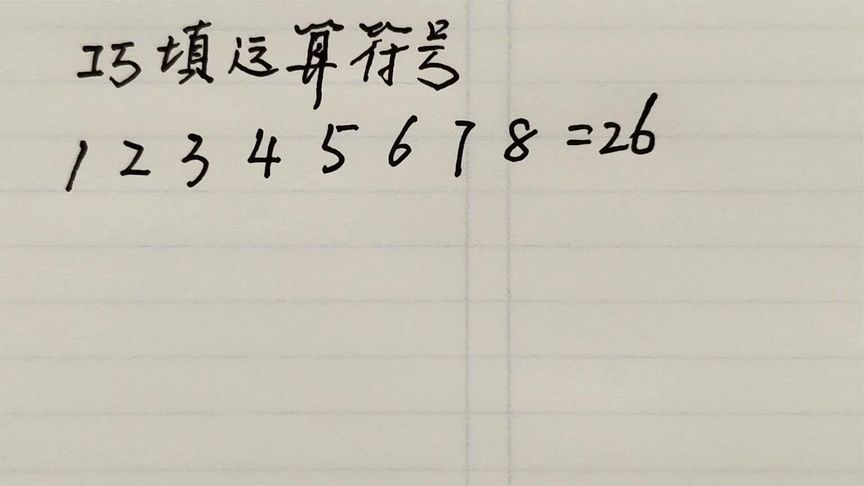 巧填运算符号
1 2 3 4 5 6 7 8 =26